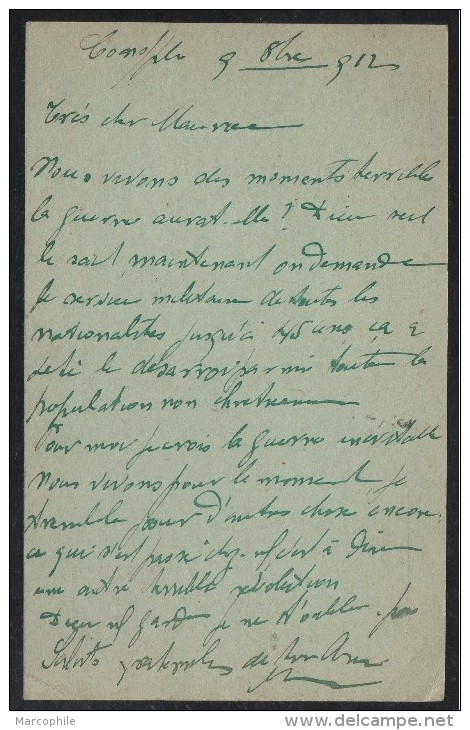 Consple 9 8bre 912
Très cher Maurice
Nous vivons des moments terrible
la guerre aurat-elle ? Dieu seul
le sait maintenant on demande
le service militaire de toutes les
nationalités jusqu'à 45 ans ça a
jeté le désarroi parmi toute la
population non chretienne
Pour moi je crois la guerre inévitable
Nous vivons pour le moment je
tramble pour d'autres chose encore
ce qui s'est passé c'est à dire
une autre terrible révolution
Dieu garde je ne t'oublie pas
Saluts de ton
Marcophile
www.delcampe.net